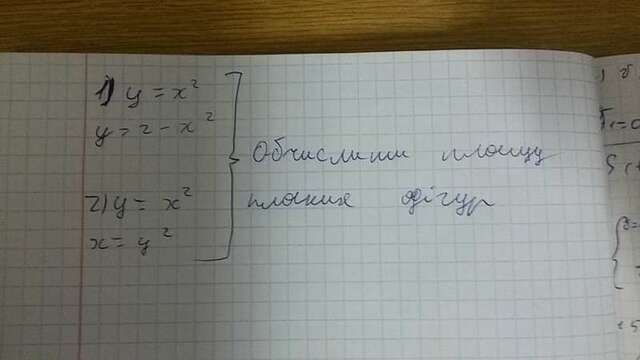 1) y = x²
y = 2 - x²
2) y = x²
x = y²
Обчислити площу
плоских фігур